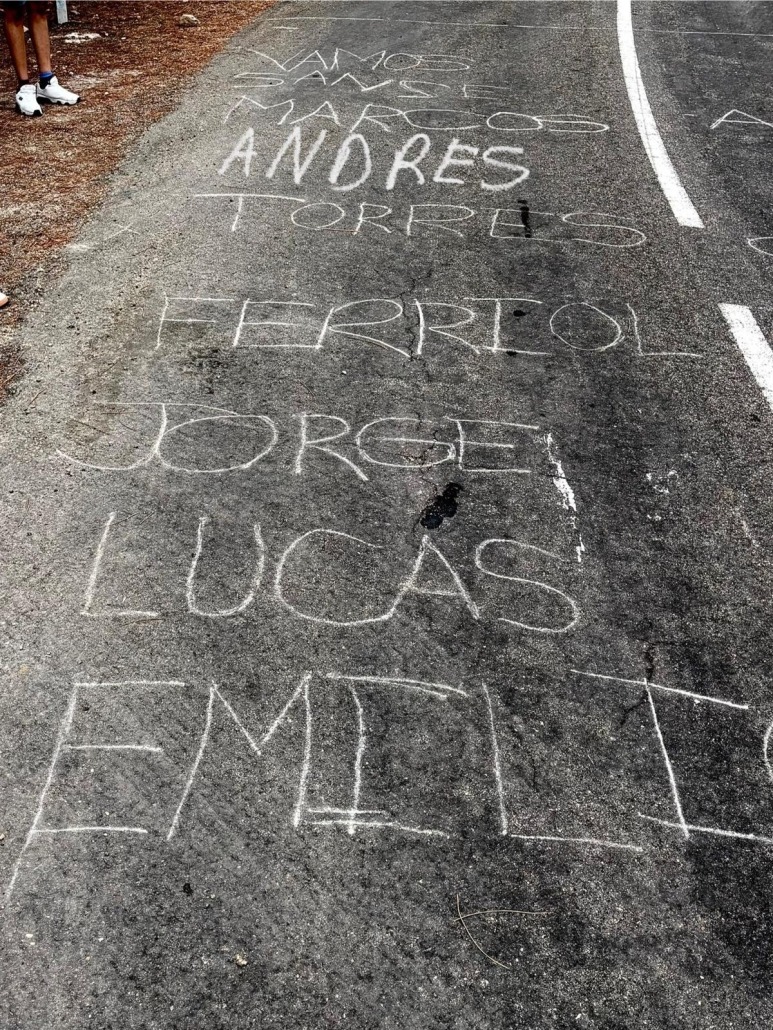 VAMOS
SANSE
MARCOS
ANDRES
TORRES
FERRIOL
JORGE
LUCAS
EMILIO